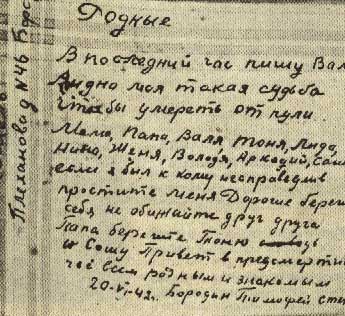 Родные
В последний час пишу Вам
Видно моя такая судьба
Что бы умереть от пули
Мама, Папа, Валя Тоня, Лида,
Нина, Женя, Володя, Аркадий, Саша
если я был к кому несправедлив
простите меня Дорогие берегите
себя не обижайте друг друга
Папа берегите Тоню
и Сашу Привет в предсмертный
час всем родным и знакомым
20-VI-42. Бородин Тимофей
Плеханова д N46